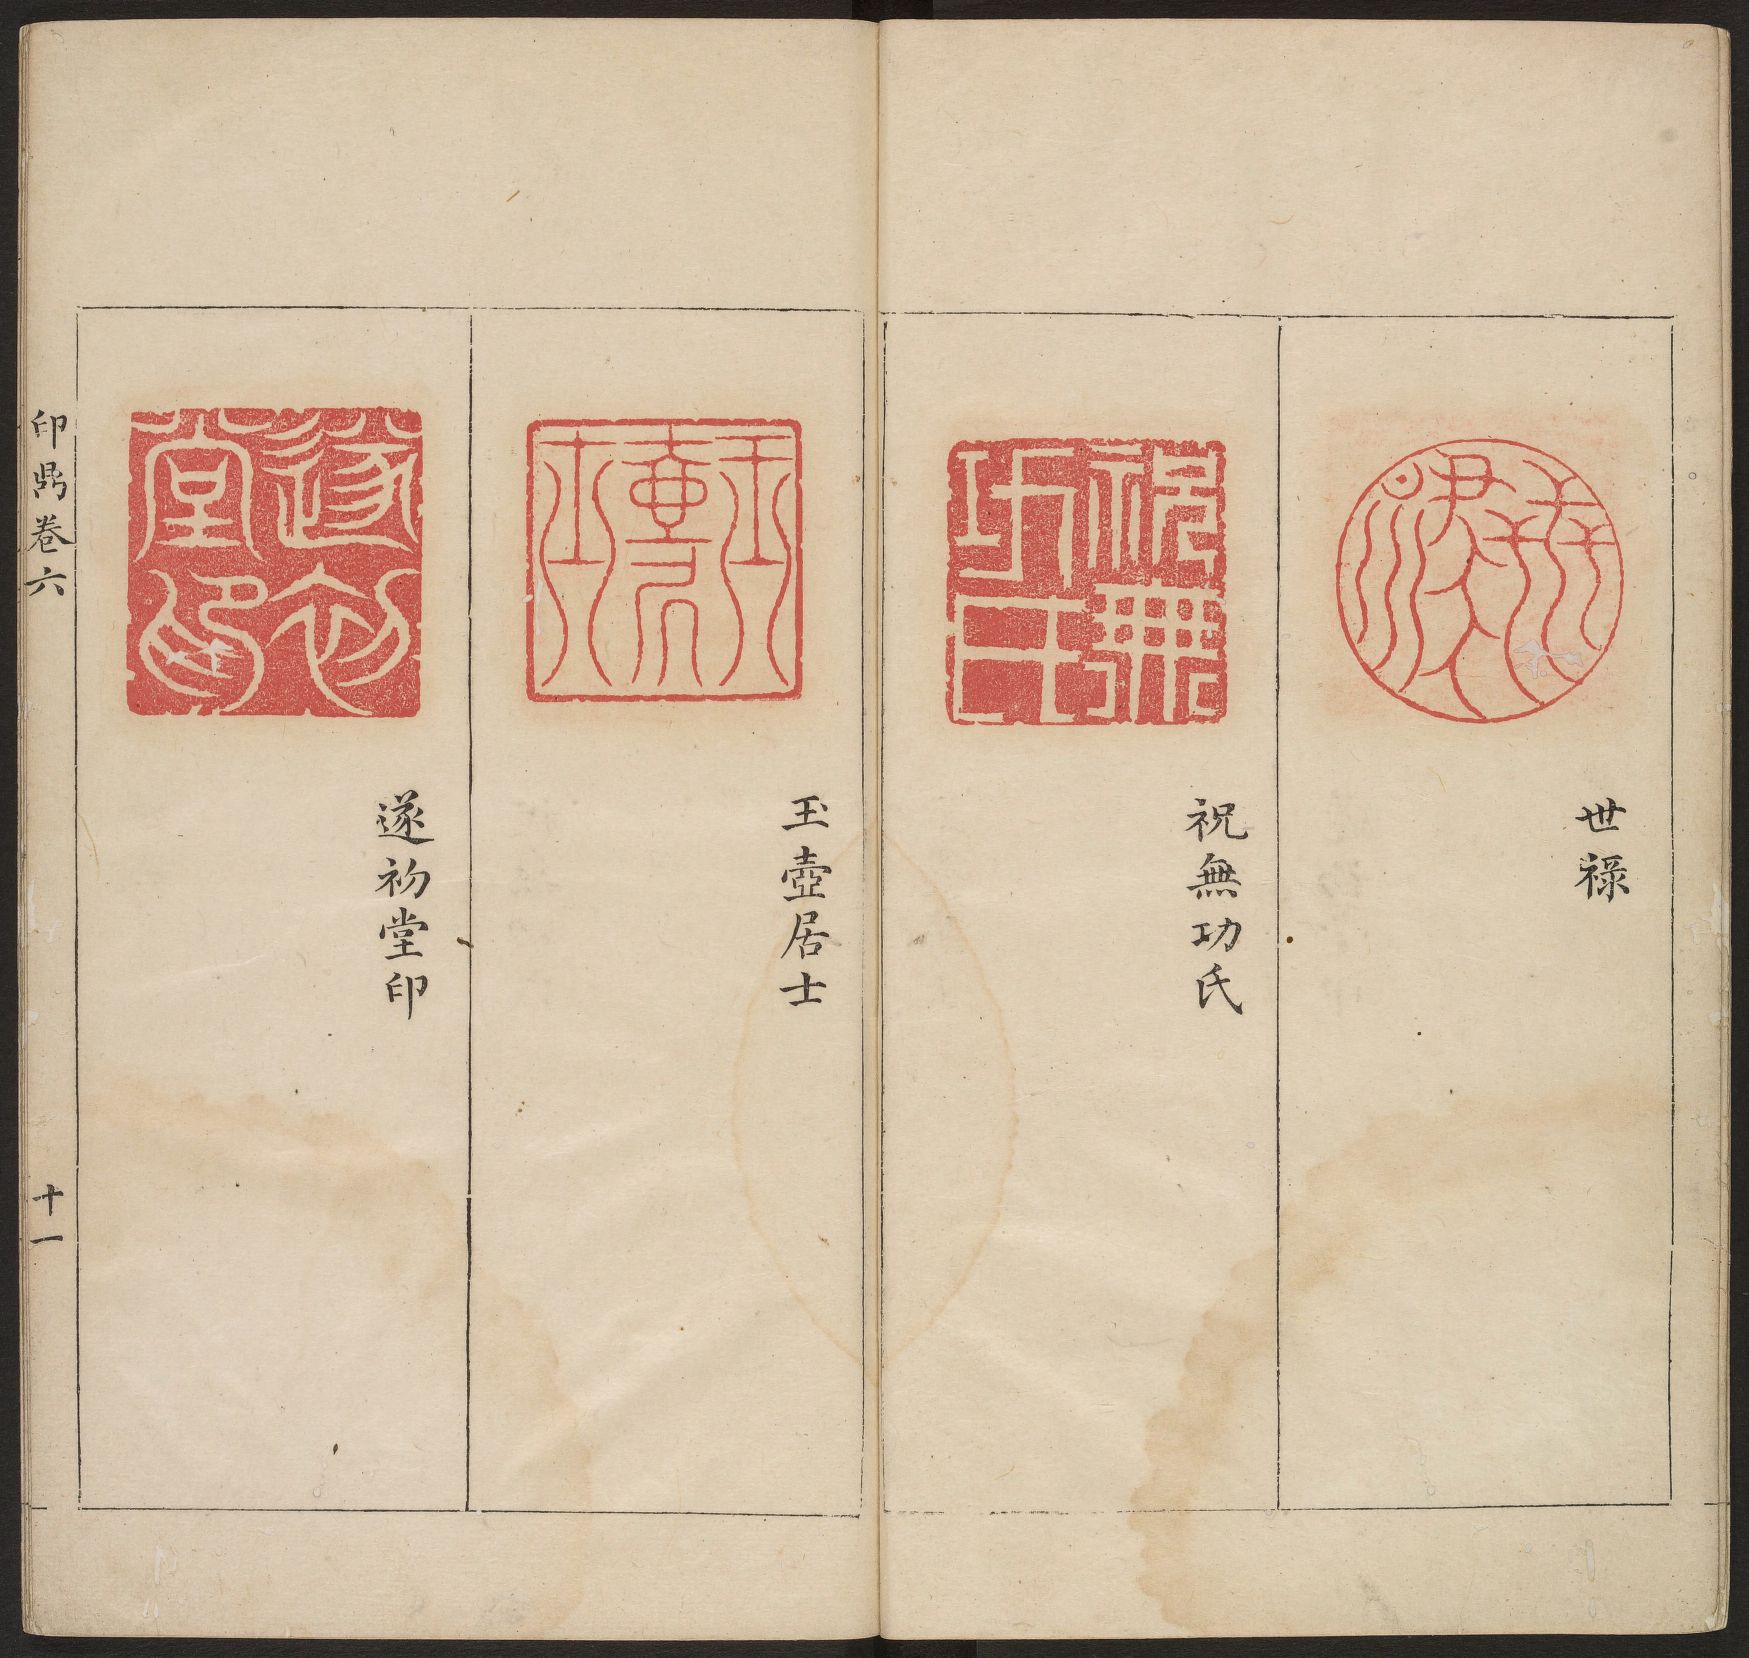 世祿
祝無功氏
玉壺居士
遂初堂印
印鼎卷六
十一